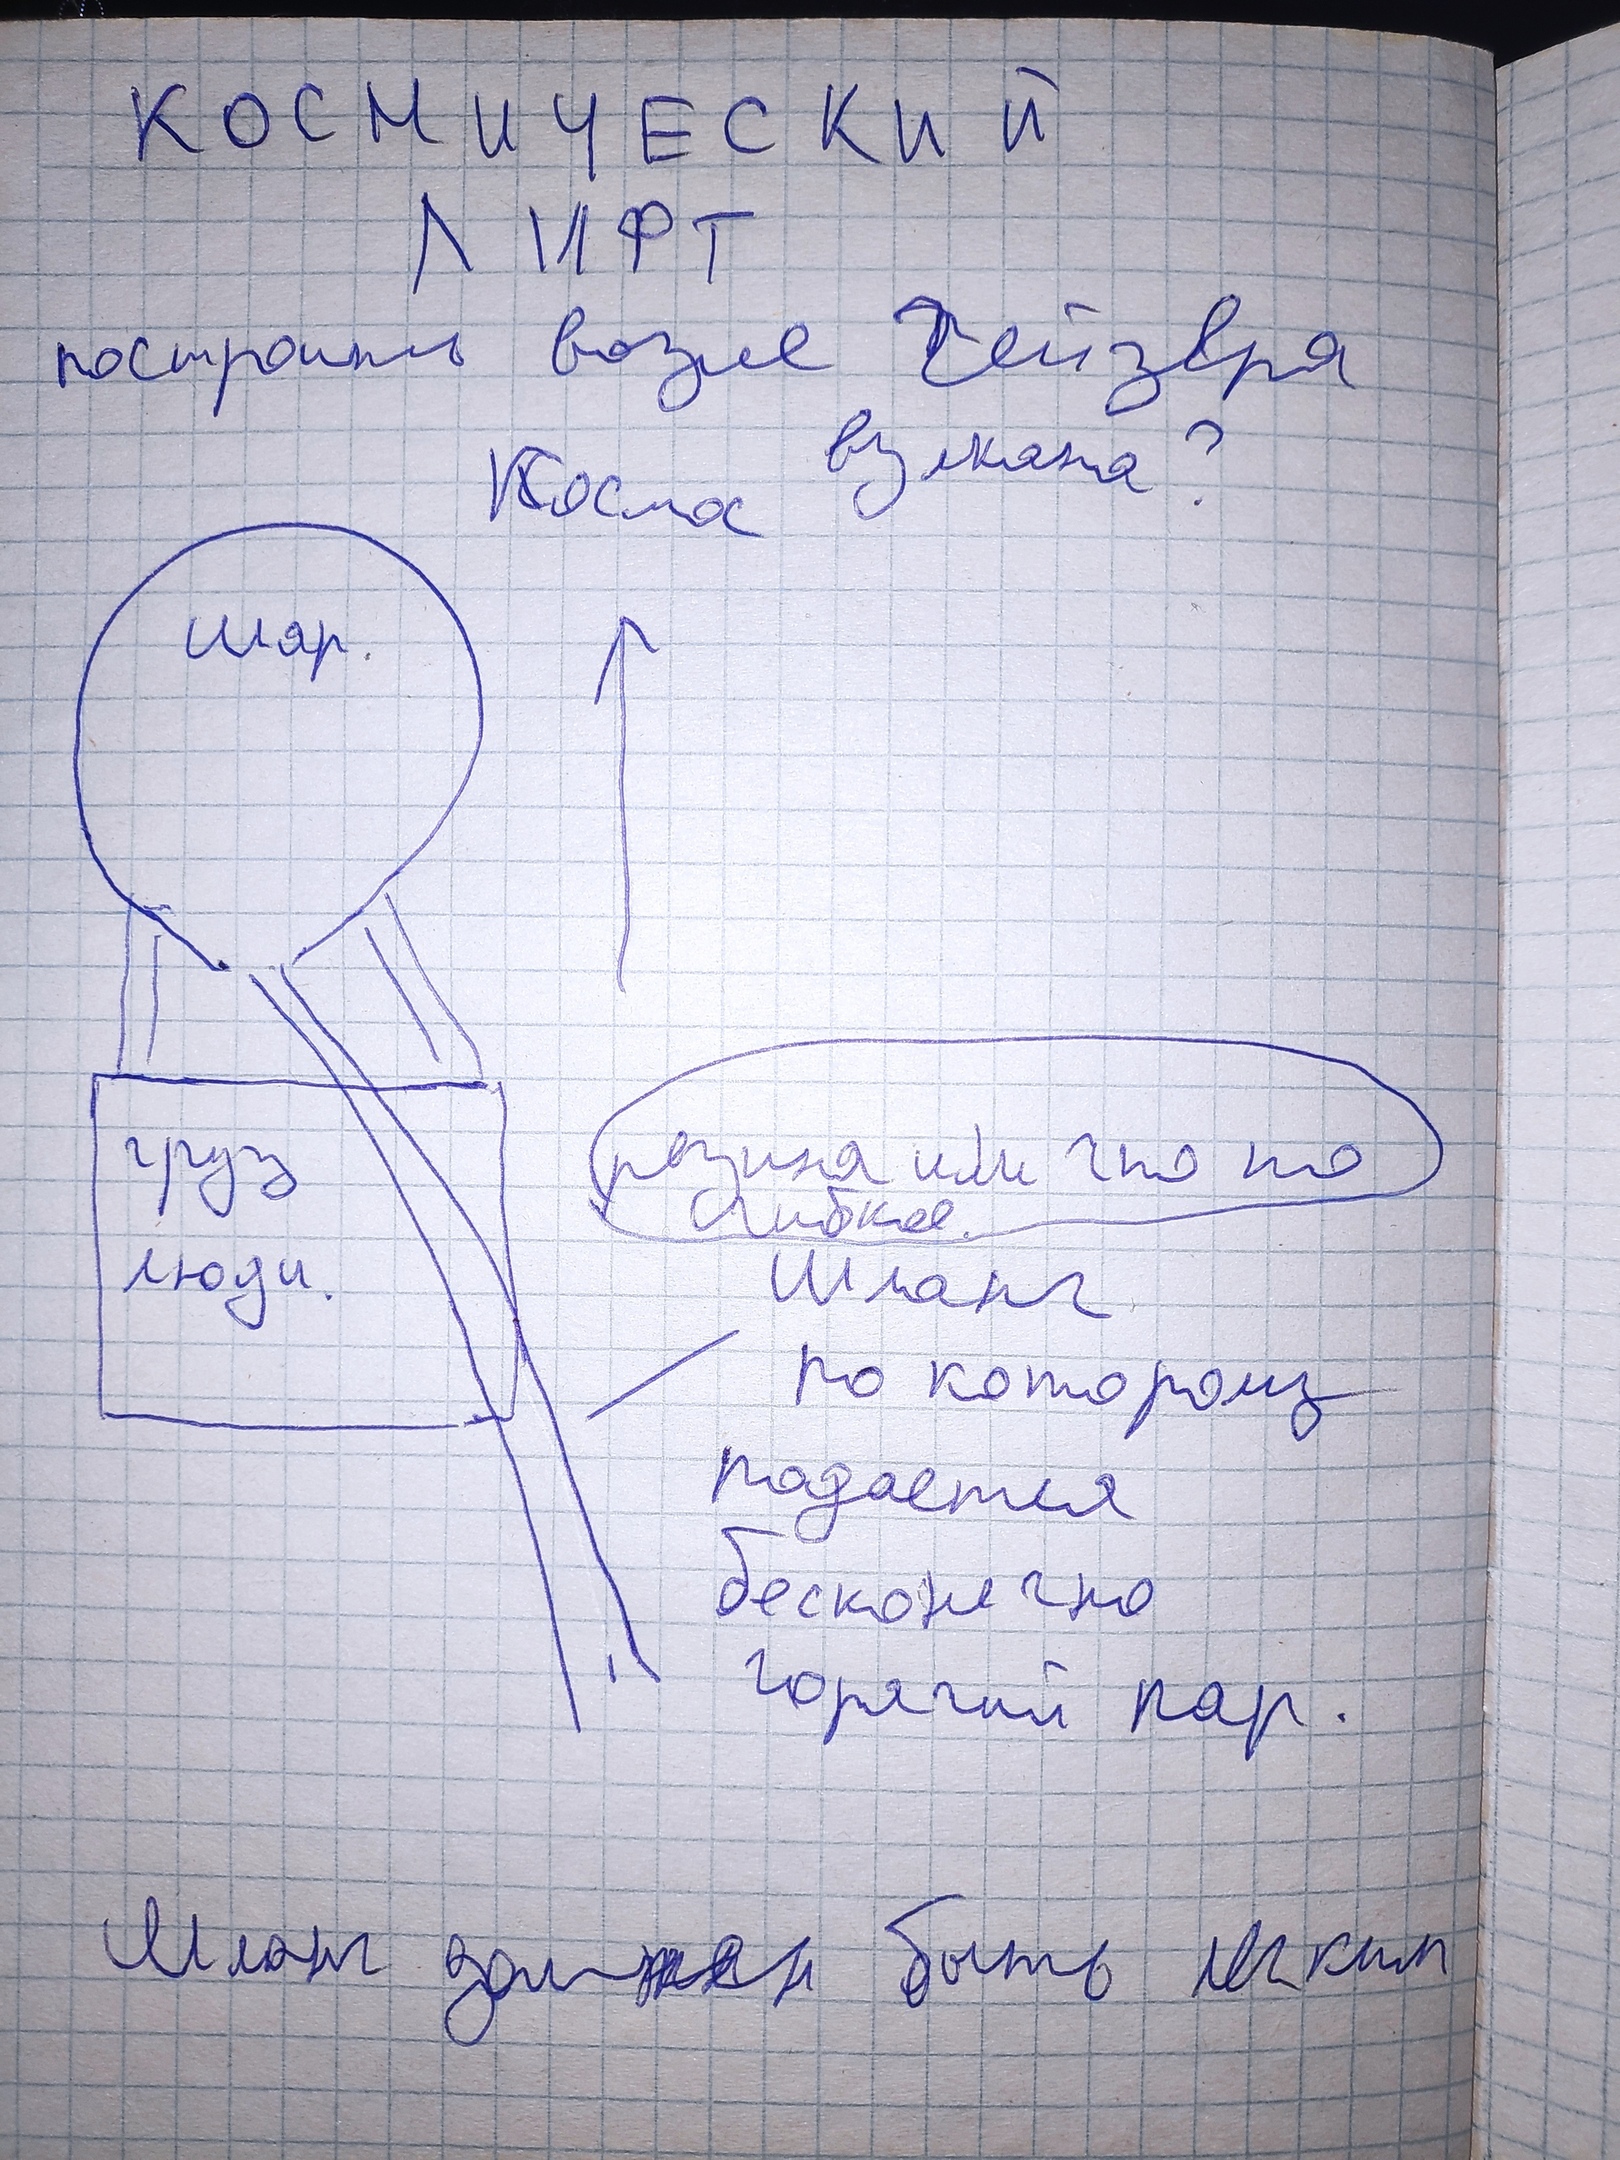 КОСМИЧЕСКИЙ
ЛИФТ
построить возле Гейзера
вулкана?
Космос
шар.
груз
люди.
резина или что то
гибкое.
Шланг
по которому
подается
бесконечно
горячий пар.
Шланг должен быть легким